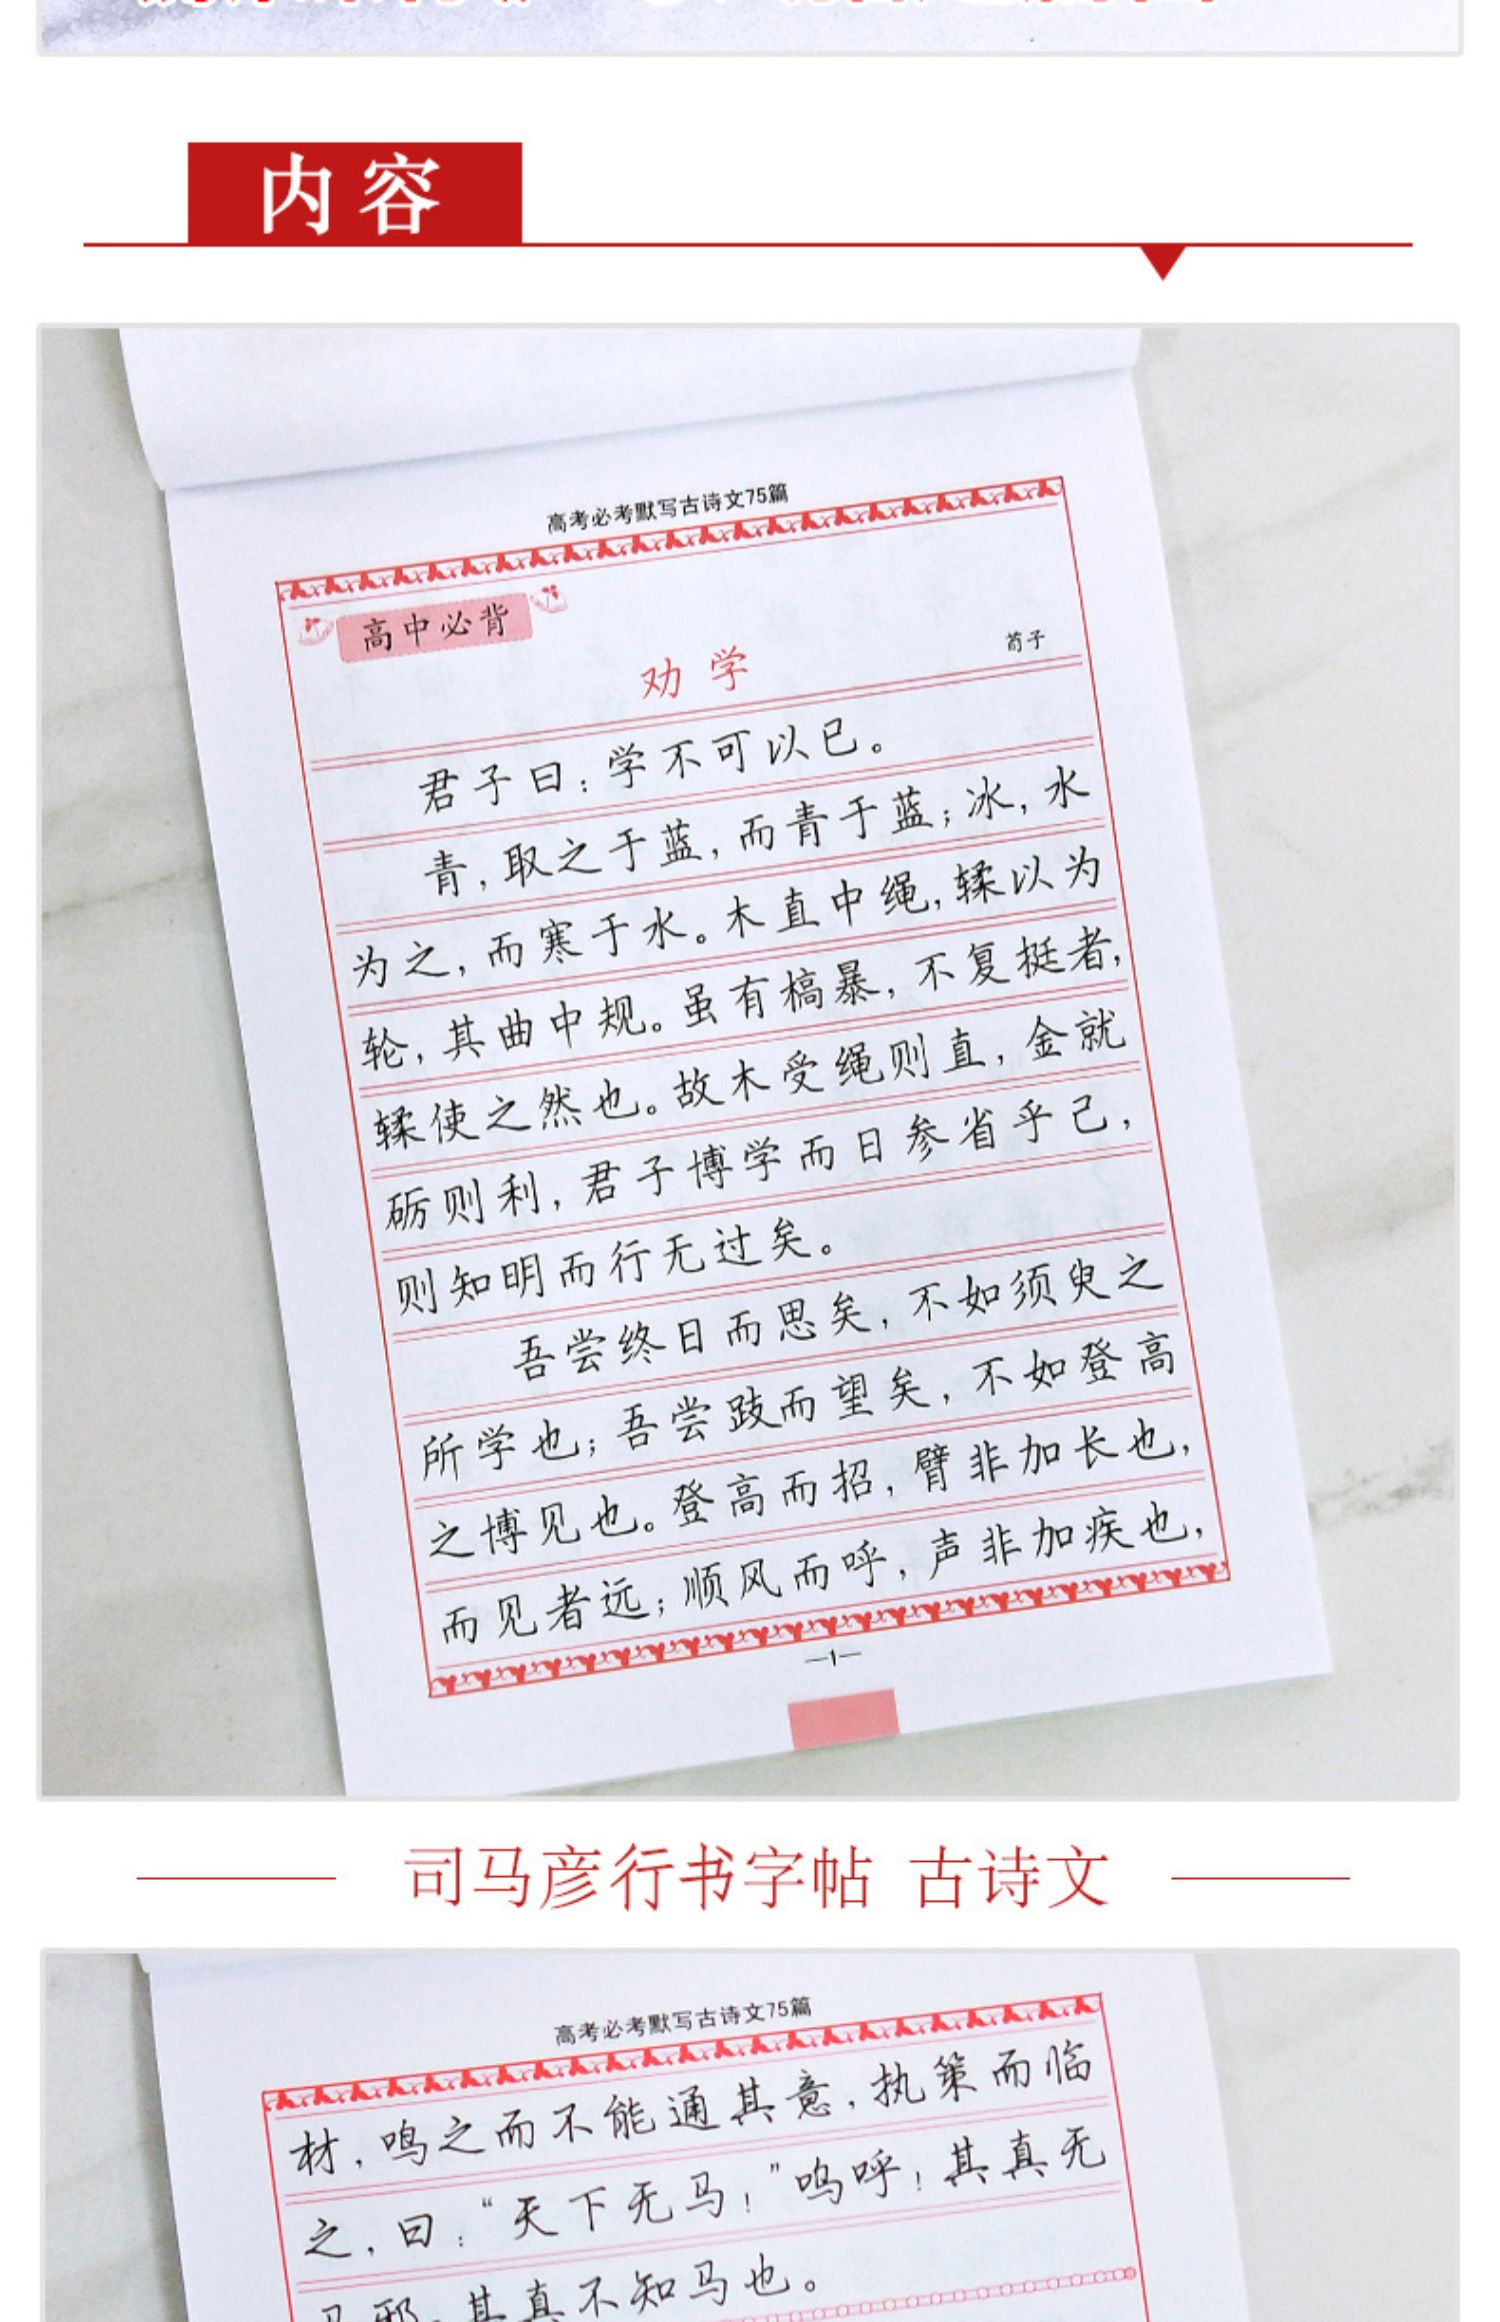 内容
高考必考默写古诗文75篇
高中必背
劝学
荀子
君子曰：学不可以已。
青，取之于蓝，而青于蓝；冰，水
为之，而寒于水。木直中绳，𫐓以为
轮，其曲中规。虽有槁暴，不复挺者，
𫐓使之然也。故木受绳则直，金就
砺则利，君子博学而日参省乎己，
则知明而行无过矣。
吾尝终日而思矣，不如须臾之
所学也；吾尝跂而望矣，不如登高
之博见也。登高而招，臂非加长也，
而见者远；顺风而呼，声非加疾也，
—1—
司马彦行书字帖 古诗文
高考必考默写古诗文75篇
材，鸣之而不能通其意，执策而临
之，曰：“天下无马！”呜呼！其真无
马邪，其真不知马也。